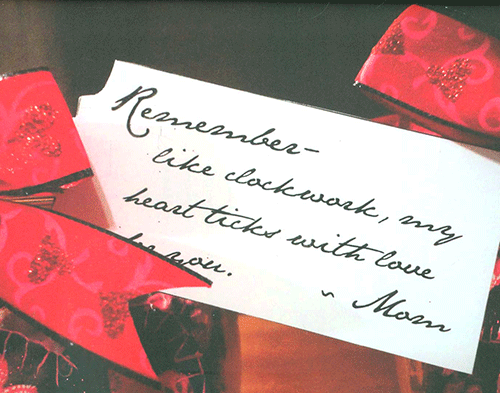 Remember-
like clockwork, my
heart ticks with love
you.
~ Mom